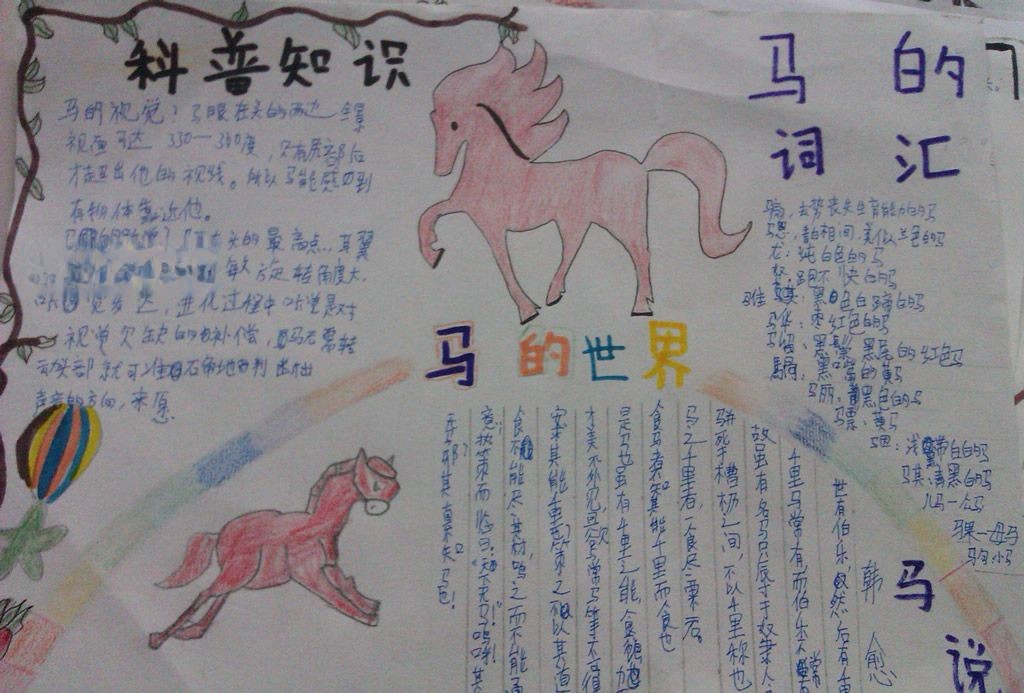 科普知识
马的视觉：马眼在头的两边 全景
视画可达 330—360度，只有尾部后
才超出他的视线。所以马能感切到
有物体靠近他。
头的最高点，其翼
敏 旋转角度大，
觉发达，进化过程中听觉是对
视觉欠缺的补偿，马无需转
动头部就可准右角地判出
声音的方向，来
马的世界
马的
词汇
骟：去势丧失生育能力的马
骢：青白相间，类似兰色的马
龙：纯白色的马
驽：跑不快的马
骓 骐：黑白色白蹄的马
骅：枣红色的马
骝：黑鬃黑尾的红色马
騧：黑嘴的黄马
骊：黑色的马
骠：黄马
骃：浅黑带白的马
骐：青黑的马
儿马—公马
骒—母马
驹 小马
马说
韩愈
世有伯乐，然后有千
里马常有，而伯乐常
故虽有名马，只辱于奴隶人
骈死于槽枥之间，不以千里称也
马之千里者，一食尽粟一石。
食马者不知其能千里而食也
是马也，虽有千里之能，食不饱，力
才美不外见，且欲与常马等不可得
安求其能千里也？策之不以其道
食不能尽其材，鸣之而不能通
意，执策而临之，曰："天下无马！"呜呼！其
无马邪？其真不知马也！